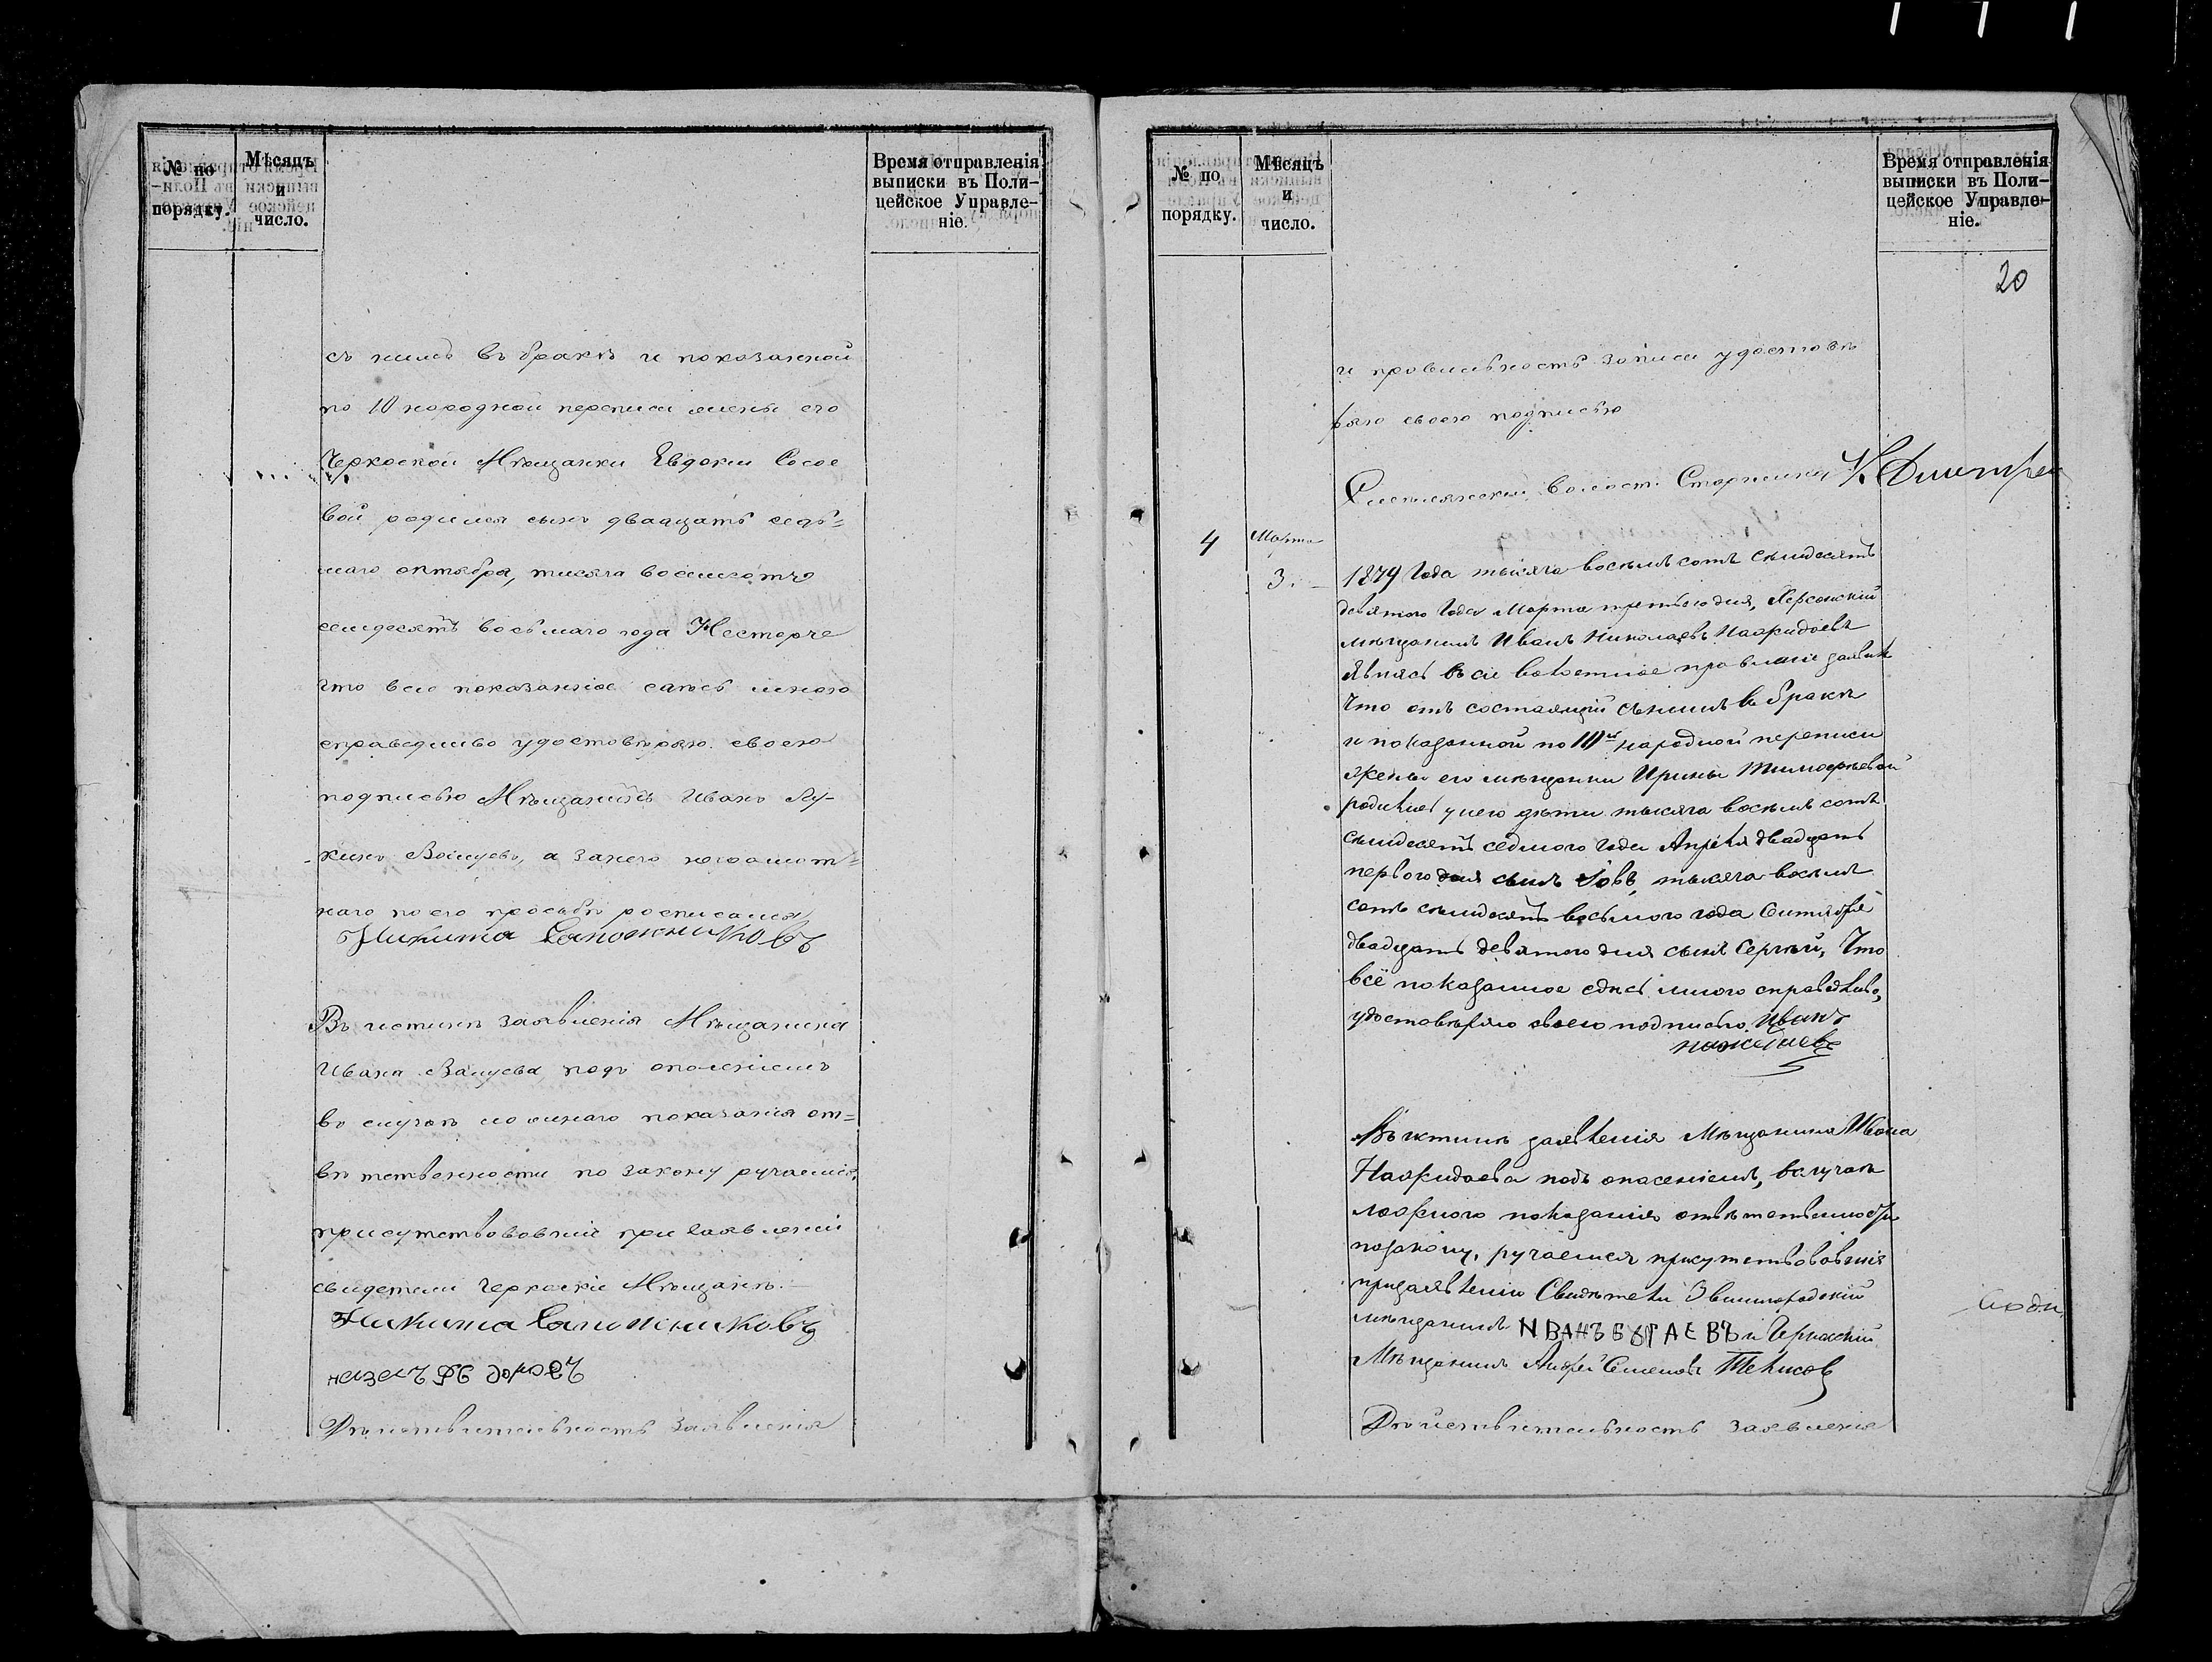 № по
порядку.
Мѣсяцъ
и
число.
Время отправленія
выписки въ Поли-
цейское Управле-
ніе.
съ нимъ въ бракѣ и показанной
по 10 народной переписи жены его
Черкаской Мѣщанки Евдокіи Сосое
вой родился сынъ двадцать седь=
маго октября, тисяча восимсотъ
семдесятъ восьмаго года Несторъ
что все показанное сдѣсь мною
справедливо удостовѣряю своею
подписью Мѣщанинъ Иванъ Лу-
кинъ а занего неграмот=
наго по его прозьбѣ росписался
Никита Сапожниковъ
Въ истинѣ заявленія Мѣщанина
Ивана подъ опасеніемъ
во случаѣ ложнаго показанія от=
вѣтственности по закону ручаемся
присутствовавшіе при заявленіи
свидетели Черкаскіе Мѣщанѣ.
Никита Сапожниковъ
Дѣйствительность заявленія
№ по
порядку.
Мѣсяцъ
и
число.
Время отправленія
выписки въ Поли-
цейское Управле-
ніе.
20
и провильность записи удостовѣ
ряю своею подписью
волост. Старшина
4
Марта
3.
1879 Года тысяча восемьсотъ семидесятъ
девятого Года Марта третьего дня, Херсонскій
мѣщанинъ Иванъ Николаевъ Нажидаевъ
являсь въ сіе волостное правленіе заявилъ
Что отъ состаящій снимъ въ бракѣ
и показанной по 10й народной переписи
жены его мѣщанки Ирины Тимофѣевой
родились унего дѣти тысяча восемь сотъ
семидесятъ седмого года Апреля двадцать
первого дня сынъ Іовъ, тысяча восемь
сотъ семидесятъ восьмого года Сентября
двадцать девятого дня сынъ Сергѣй, Что
всё показанное сдѣсь мною справедливо,
удостовѣряю своею подписью. Иванъ
Въ истинѣ заявленія Мѣщанина Ивана
Нажидаева подъ опасеніемъ, вслучаѣ
ложного показанія отвѣтственности
позакону, ручаемся присутствовавшія
призаявленію Свидѣтели Звинигородскій
мѣщанинъ ИВАНЪ БУГАЕВЪ и Черкаскій
Мѣщанинъ Андрей Семеновъ
Дѣйствительность заявленія